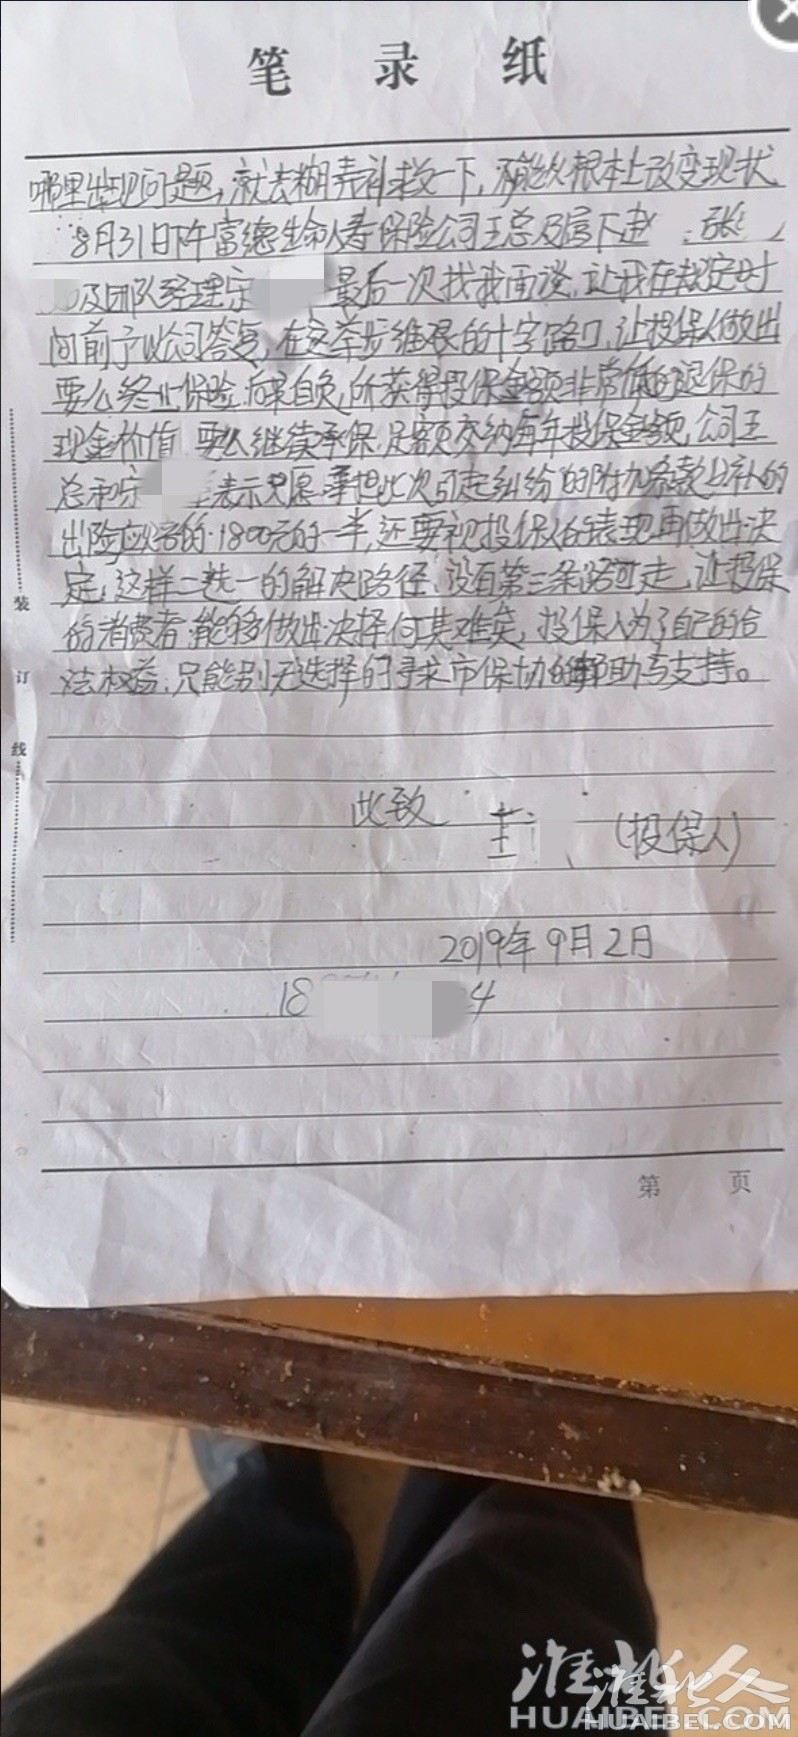 笔 录 纸
哪里出现问题,就去糊弄补救一下,不能从根本上改变现状
8月31日下午富德生命人寿保险公司王总及属下赵 张
及团队经理宗 最后一次找我面谈,让我在规定时
间前予以公司答复,在这举步维艰的十字路口,让投保人做出
要么终止保险.后果自负,所获得投保金额非常低的退保的
现金价值,要么继续承保.足额交纳每年投保金额,公司王
总和宗 表示只愿承担此次引起纠纷的附加条款上补的
出险应赔的1800元的一半,还要视投保人的表现再做出决
定,这样二选一的解决路径,没有第三条路可走,让投保
的消费者能够做出决择何其难矣,投保人为了自己的合
法权益,只能别无选择的寻求市保协的帮助与支持。
此致
(投保人)
2019年9月2日
18 4
第 页
装
订
线
淮北人
HUAIBEI.COM
淮北人
HUAIBEI.COM